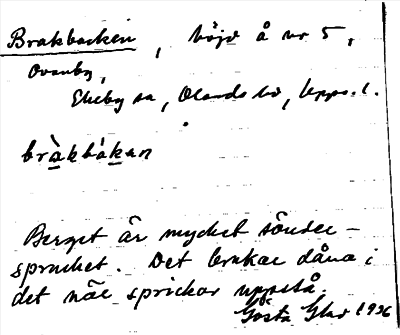 Brakbacken, höjd å nr 5,
Ovanby,
Ekeby sn, Olands hd, Upps. l.
bràkbákan
Berget är mycket sönder-
sprucket. Det brukar dåna i
det när sprickor uppstå.
Gösta 1936